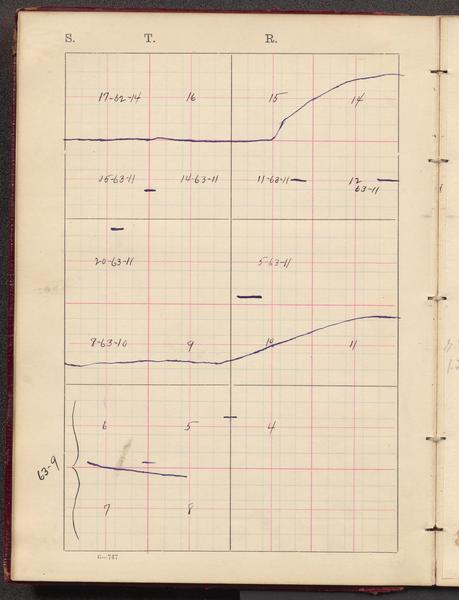 S. T. R.
17-62-14 16 15 14
15-63-11 14-63-11 11-63-11 12
63-11
20-63-11 5-63-11
8-63-10 9 10 11
6 5 4
63-9
7 8
6—747